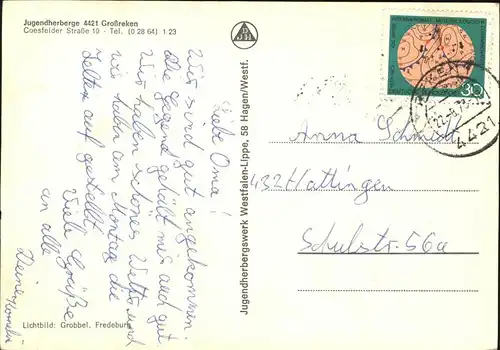 Jugendherberge 4421 Großreken
Coesfelder Straße 19 - Tel. (0 28 64) 1 23
DJH
Liebe Oma!
Wir sind gut angekommen.
Die Gegend gefällt mir auch gut.
Wir haben schönes Wetter und
wir haben am Montag die
Zelten auf gestellt.
Viele Grüße
an alle
Deine Kornelia
Jugendherbergswerk Westfalen-Lippe, 58 Hagen/Westf.
30
4421
Anna Schmidt
432 Hattingen
Schulstr. 56a
Lichtbild: Grobbel, Fredeburg